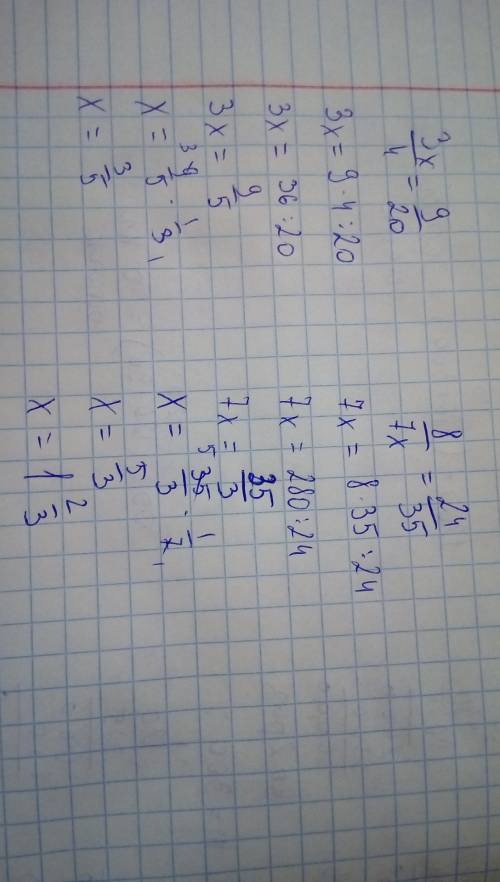 3x/4 = 9/20
3x = 9 · 4 : 20
3x = 36 : 20
3x = 9/5
x = 9/5 · 1/3
x = 3/5
8/7x = 24/35
7x = 8 · 35 : 24
7x = 280 : 24
7x = 35/3
x = 35/3 · 1/7
x = 5/3
x = 1 2/3